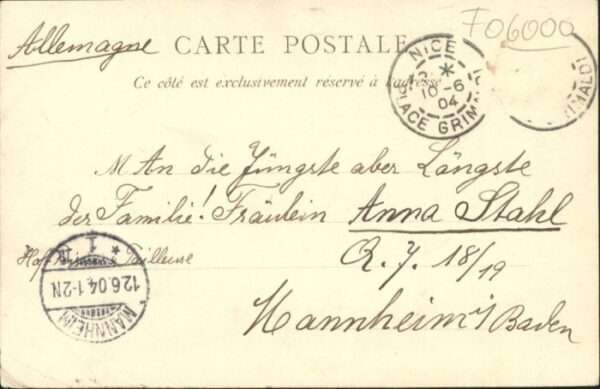 Allemagne
CARTE POSTALE
F06000
Ce côté est exclusivement réservé à l'adresse
NICE
10-6
04
PLACE GRIMALDI
An die Jüngste aber Längste
der Familie! Fräulein Anna Stahl
Tailleuse
Q. 7. 18/19
Mannheim i/Baden
MANNHEIM
12.6.04.1-2N
1